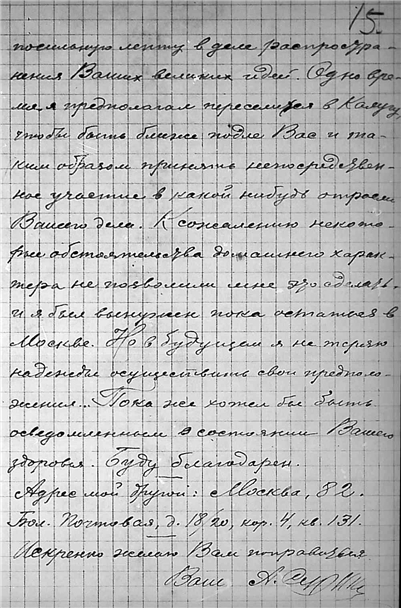 15.
посильную лепту в деле распростра-
нения Ваших великих идей. Одно вре-
мя я предполагал переселится в Калугу,
чтобы быть ближе подле Вас и та-
ким образом принять непосредствен-
ное участие в какой нибудь отрасли
Вашего дела. К сожалению некото-
рые обстоятельства домашнего харак-
тера не позволили мне это сделать
и я был вынужден пока остаться в
Москве. Но в будущем я не теряю
надежды осуществить свои предполо-
жения... Пока же хотел бы быть
осведомленным о состоянии Вашего
здоровья. Буду благодарен.
Адрес мой другой: Москва, 82.
Бол. Почтовая, д. 18/20, кор. 4, кв. 131.
Искренно желаю Вам поправиться.
Ваш А.